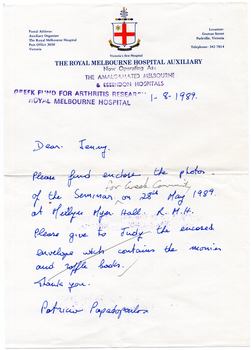 Postal Address:
Auxiliary Organiser
The Royal Melbourne Hospital
Post Office 3050
Victoria
Location:
Grattan Street
Parkville, Victoria
Telephone: 342 7014
THE ROYAL MELBOURNE HOSPITAL AUXILIARY
Now Operating As:
THE AMALGAMATED MELBOURNE
& ESSENDON HOSPITALS
GREEK FUND FOR ARTHRITIS RESEARCH
ROYAL MELBOURNE HOSPITAL
1-8-1989.
Dear Jenny,
Please find enclose the photos
for Greek Community
of the Seminar, on 28th May 1989.
at Mellyee Myer Hall. R.M.H.
Please give to Judy the encored
envelope wich contains the monies
and raffle books.
Thank you.
Patricia Papadopoulos